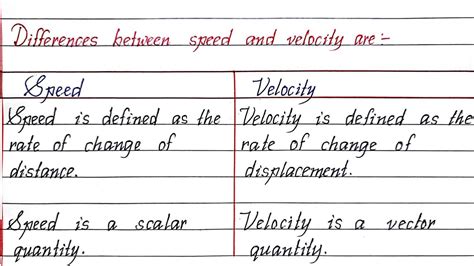 Differences between speed and velocity are :-
Speed
Velocity
Speed is defined as the
rate of change of
distance.
Velocity is defined as the
rate of change of
displacement.
Speed is a scalar
quantity.
Velocity is a vector
quantity.